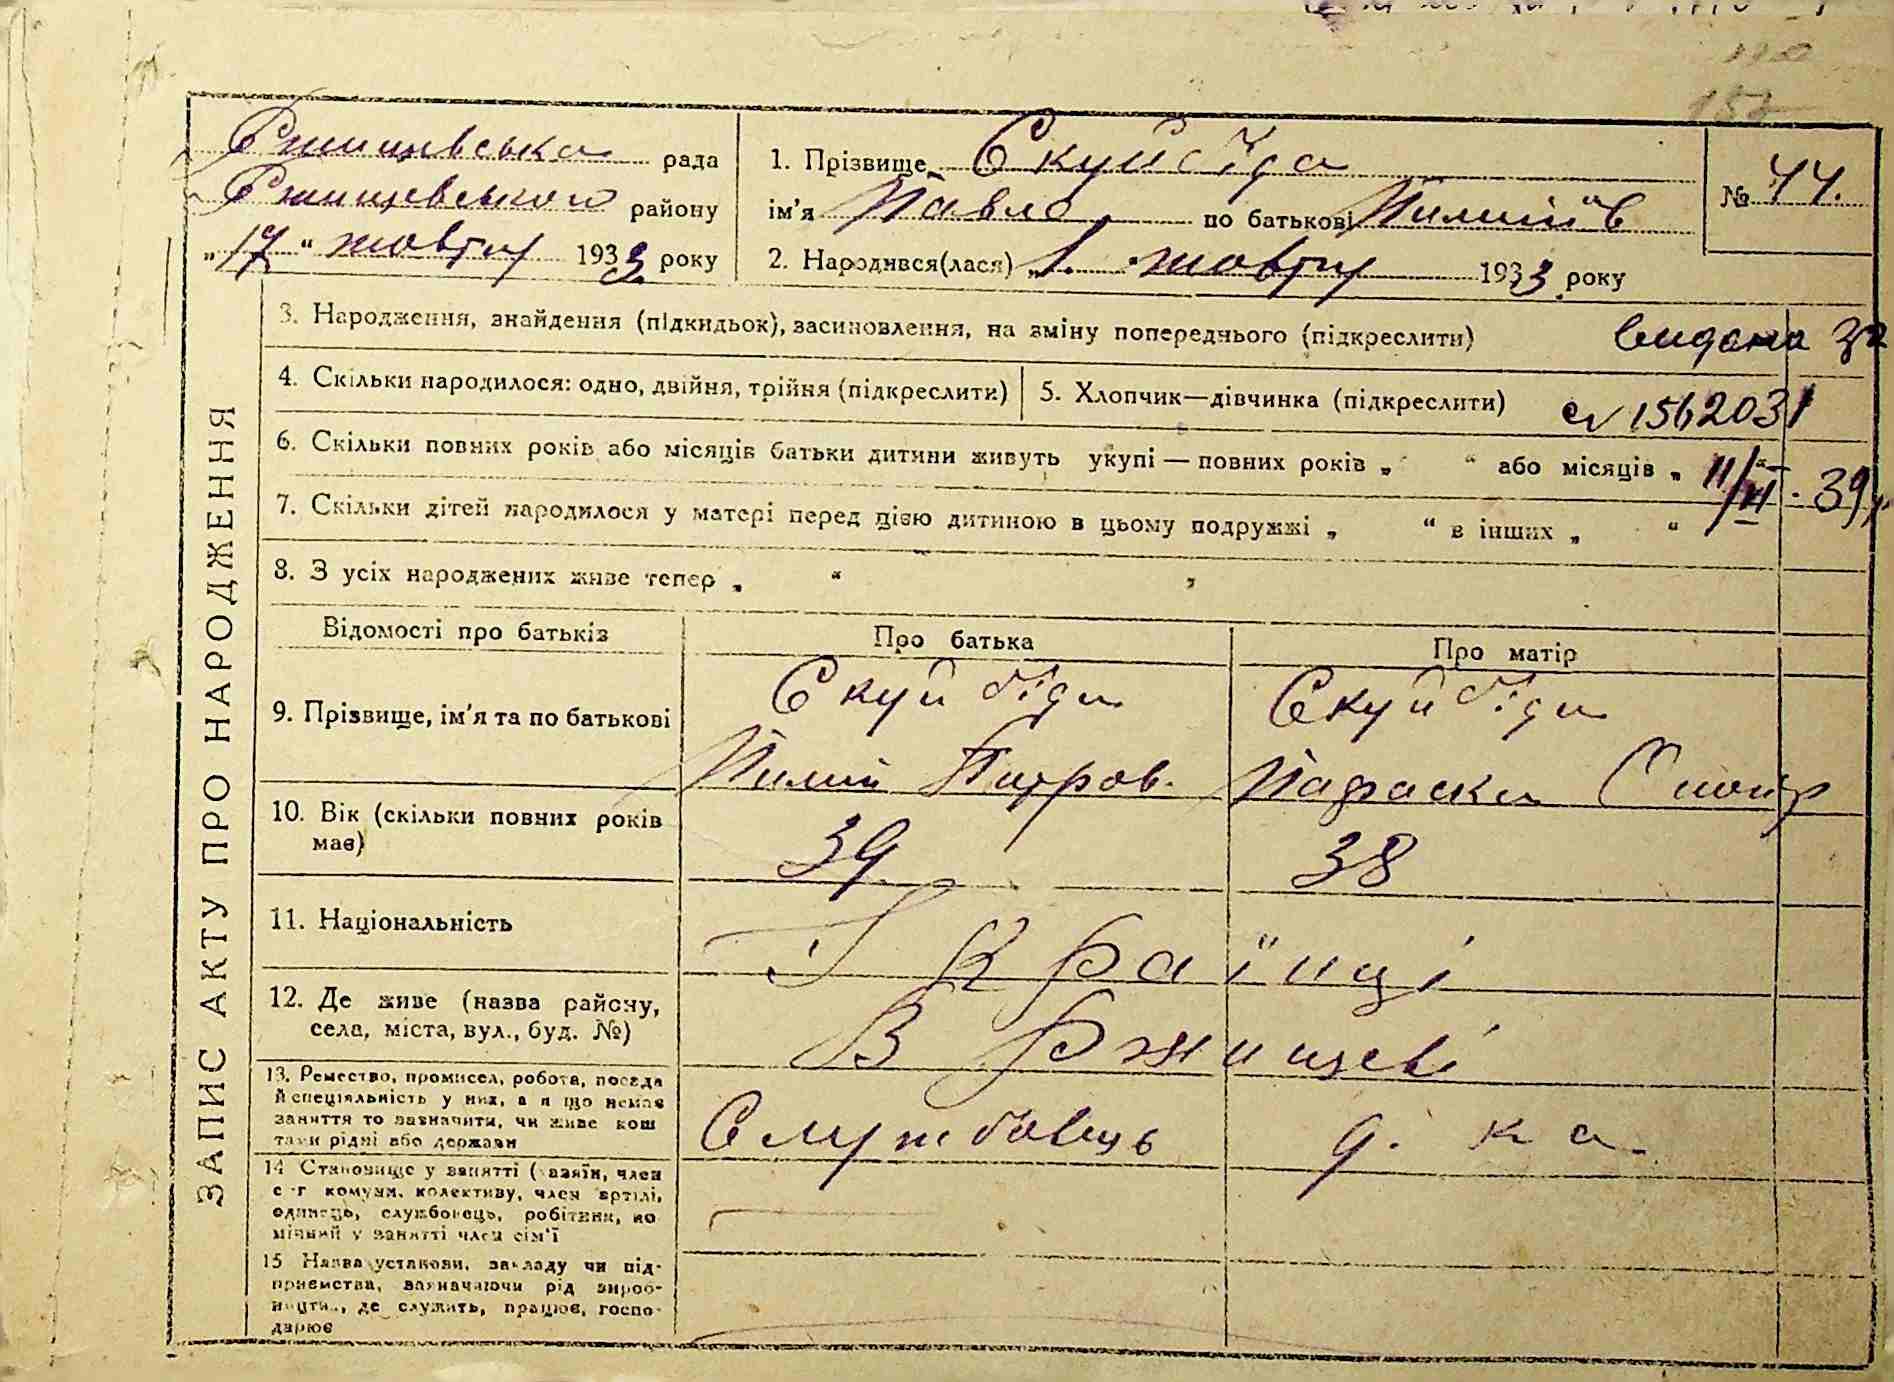 Ржищевська рада
Ржищевського району
„17“ жовтня 1933 року
1. Прізвище Скуйбіда
ім'я Павло по батькові Пилипів
2. Народився(лася) „1. жовтня 1933 року
№ 44.
3. Народження, знайдення (підкидьок), засиновлення, на зміну попереднього (підкреслити)
видана
4. Скільки народилося: одно, двійня, трійня (підкреслити)
5. Хлопчик—дівчинка (підкреслити)
1562031
6. Скільки повних років або місяців батьки дитини живуть укупі — повних років „ “ або місяців „ “
11/VI - 39 р.
7. Скільки дітей народилося у матері перед цією дитиною в цьому подружжі „ “ в інших „ “
8. З усіх народжених живе тепер „ “
ЗАПИС АКТУ ПРО НАРОДЖЕННЯ
Відомості про батьків
Про батька
Про матір
9. Прізвище, ім'я та по батькові
Скуйбіда
Пилип Петров.
Скуйбіда
Параска
10. Вік (скільки повних років має)
39
38
11. Національність
Українці
12. Де живе (назва району,
села, міста, вул., буд. №)
В Ржищеві
13. Ремество, промисел, робота, посада
й спеціяльність у них, а я що немає
заняття то зазначити, чи живе кош
тами рідні або держави
Службовець
д. ка
14 Становище у занятті (хазяїн, член
с-г комуни, колективу, член артілі,
одинець, службовець, робітник, по
мічний у занятті член сім'ї
15 Назва установи, закладу чи під-
приємства, зазначаючи рід вироб-
ництва, де служить, працює, госпо-
дарює